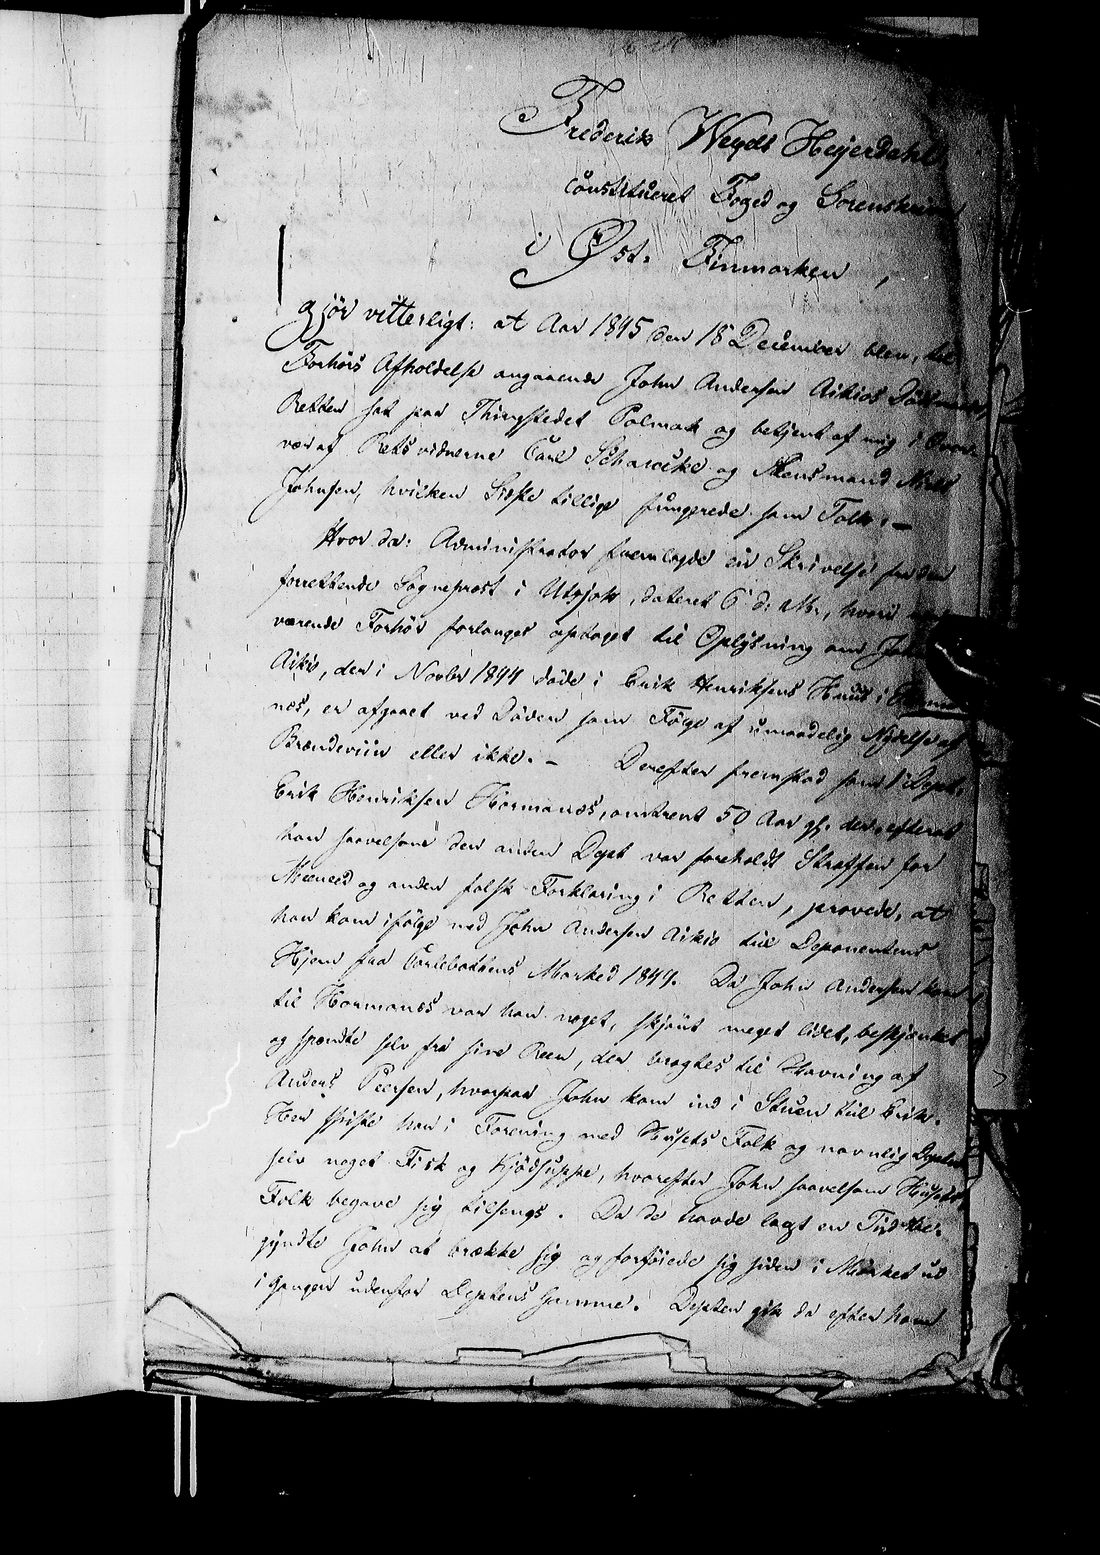 Frederik Weyds Heyerdahl,
constitueret Foged og Sorenskriver
i Øst-Finmarken,
gjör vitterligt: at Aar 1845 den 18 December blev, til
Forhörs Afholdelse angaaende John Andersen Aikios
Retten sat paa Thingstedet Polmak og betjent af mig i Over-
vær af Retsvidnerne Carl Schancke og Lensmand Niels
Johnsen, hvilken Sidste tillige fungerede som Tolk. –
Hvor da: Administrator fremlagde en Skrivelse fra den
forrettende Sogneprost i Utsjok, dateret 6 d. M., hvori
værende Forhör forlanges optaget til Oplysning om John
Aikio, der i Novbr 1844 döde i Erik Henriksens Huus i
næs, er afgaaet ved Döden som Fölge af umaadelig Nydelse af
Brændeviin eller ikke. – Derefter fremstod som 1 Dept.
Erik Henriksen Hormanæs, omtrent 50 Aar gl. der, efterat
han saavelsom den anden Dept var foreholdt Straffen for
Meeneed og anden falsk Forklaring i Retten, provede, at
han kom ifölge med John Andersen Aikio til Deponentens
Hjem fra Carlebottens Marked 1844. Da John Andersen kom
til Hormanæs var han noget, skjönt meget lidet, beskjænket
og spændte selv fra sine Reen, der bragtes til Havning af
Anders Peersen, hvorpaa John kom ind i Stuen til Erik.
Her spiste han i Forening med Husets Folk og navnlig Depten
selv noget Fisk og Kjödsuppe, hvorefter John saavelsom Husets
Folk begave sig tilsengs. Da de havde lagt en Tid be-
gyndte John at brække sig og forföiede sig siden i Mörket ud
i Gangen udenfor Deptens Gamme. Depten gik da efter ham